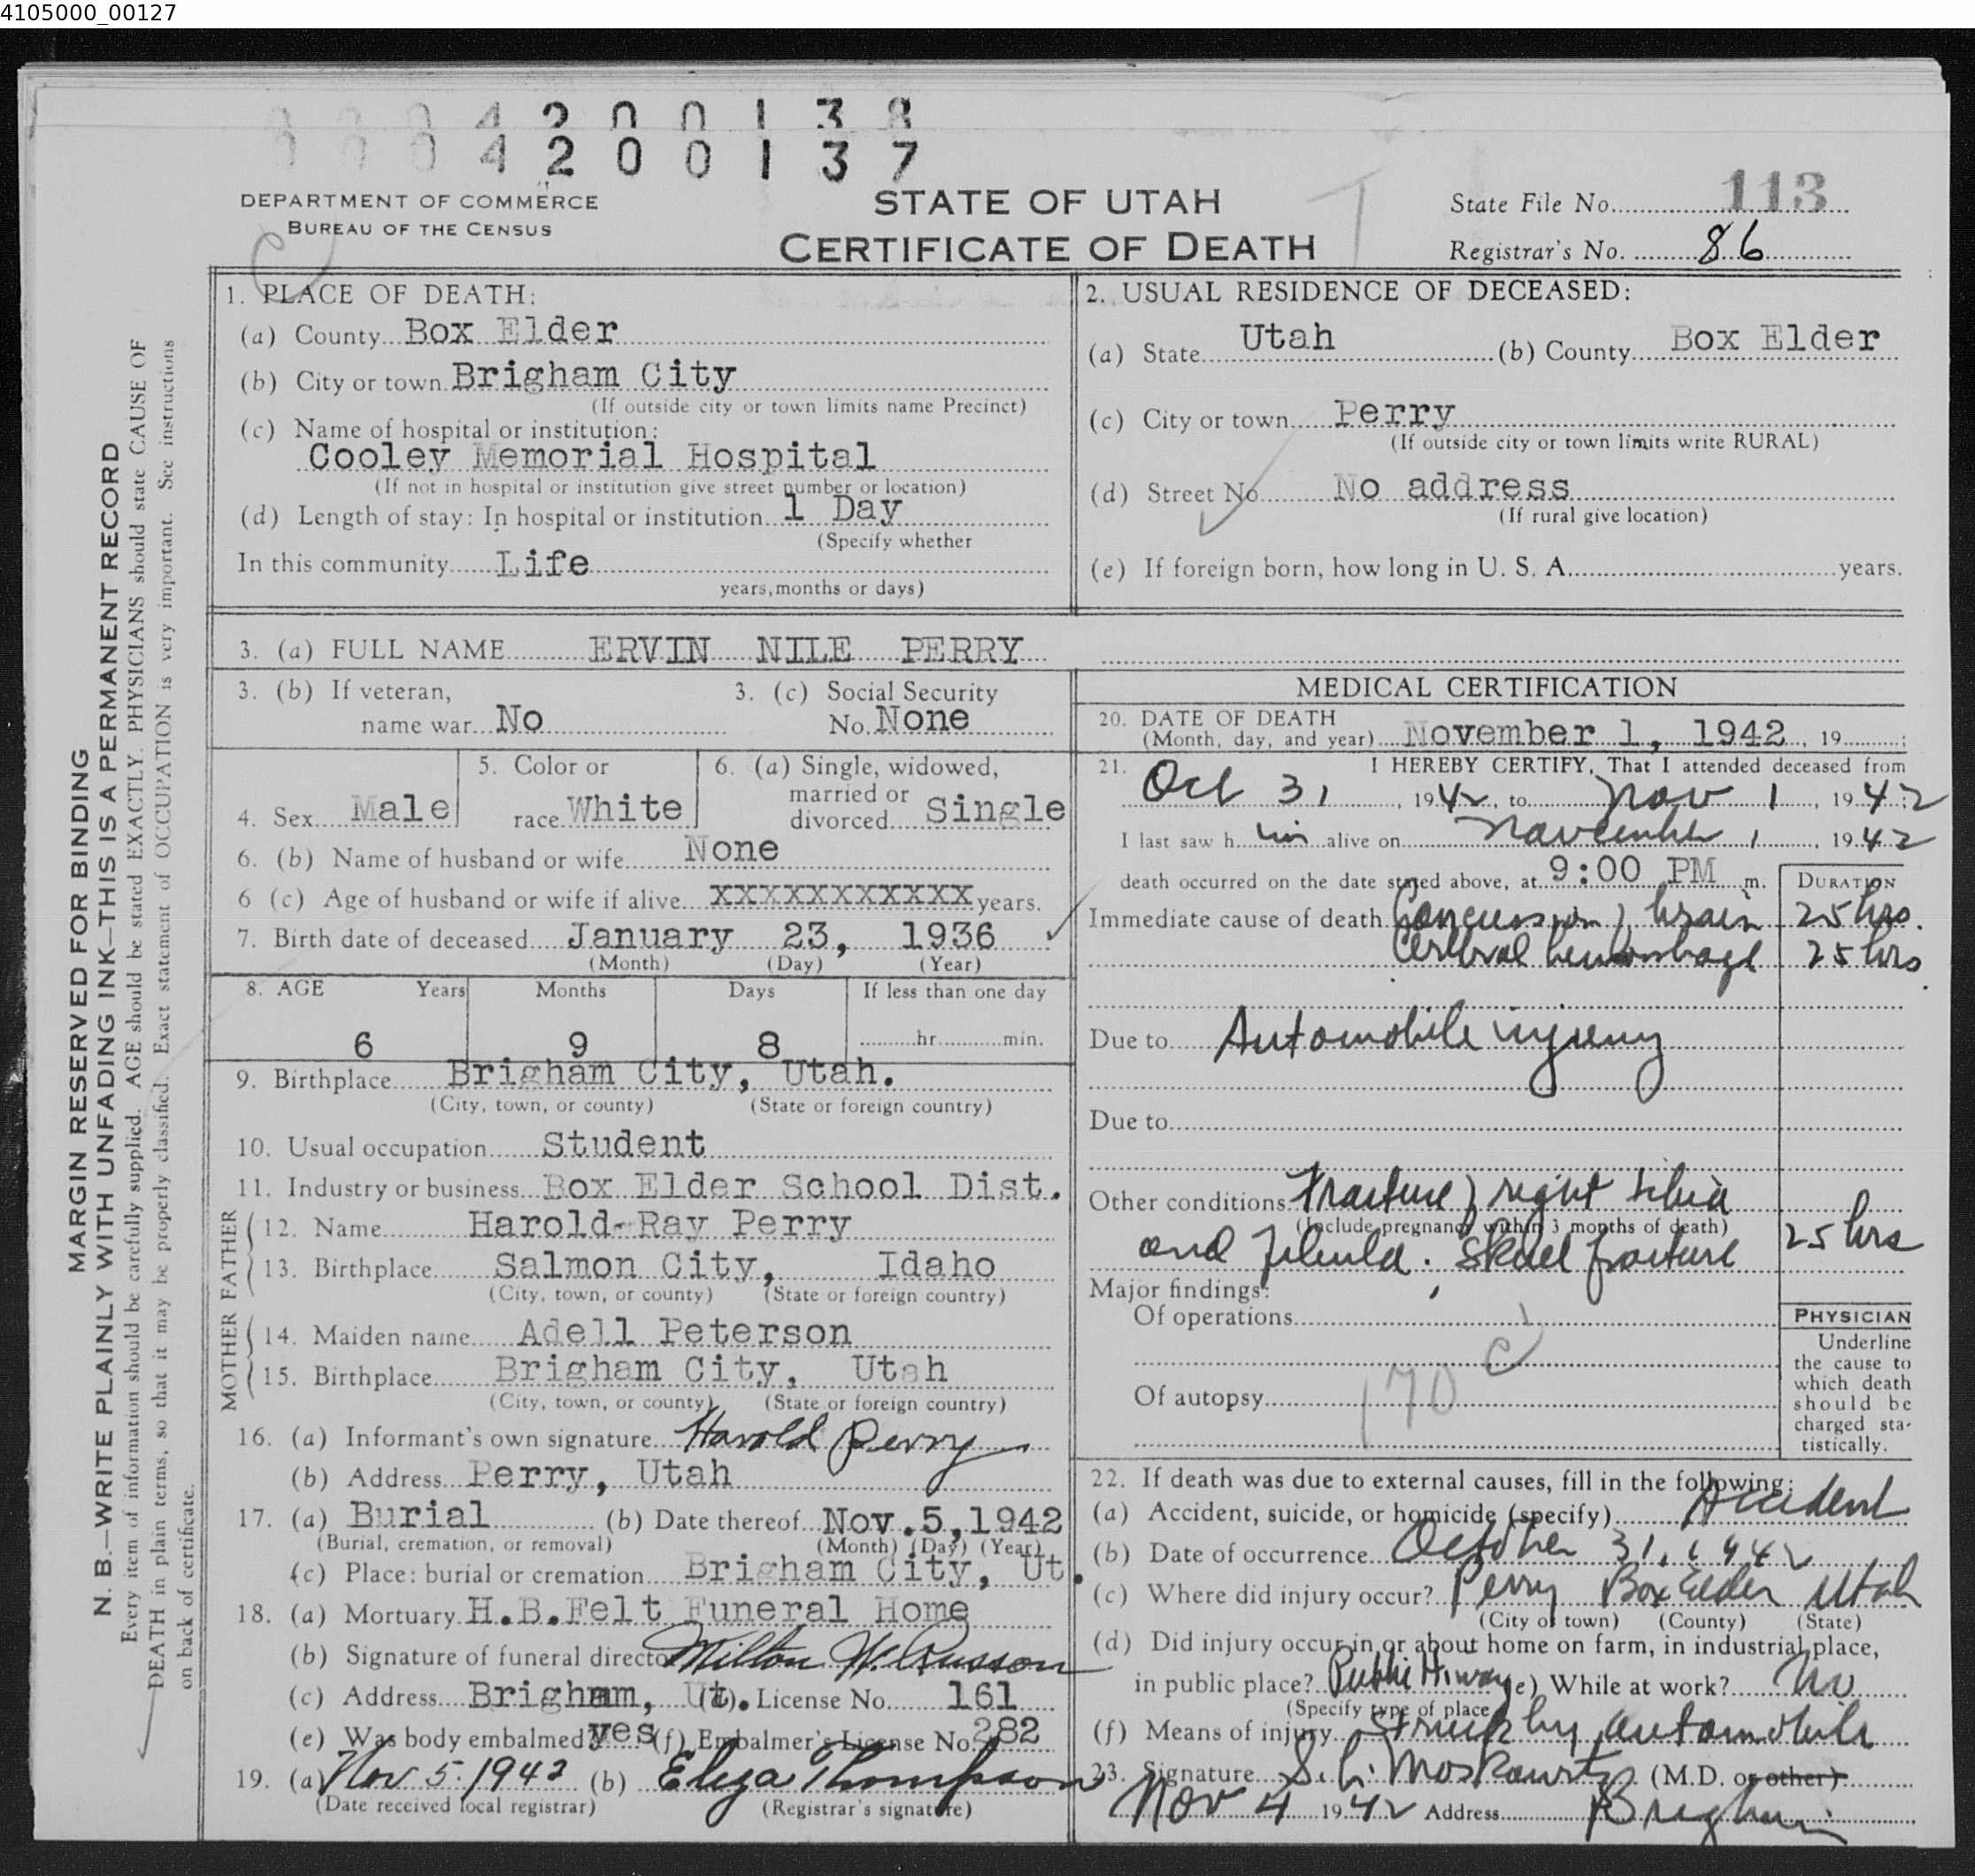 4105000_00127
4 2 0 0 1 3 8
0 0 0 4 2 0 0 1 3 7
DEPARTMENT OF COMMERCE
BUREAU OF THE CENSUS
STATE OF UTAH
CERTIFICATE OF DEATH
State File No. 113
Registrar's No. 86
MARGIN RESERVED FOR BINDING
N. B.—WRITE PLAINLY WITH UNFADING INK—THIS IS A PERMANENT RECORD
Every item of information should be carefully supplied. AGE should be stated EXACTLY. PHYSICIANS should state CAUSE OF
DEATH in plain terms, so that it may be properly classified. Exact statement of OCCUPATION is very important. See instructions
on back of certificate.
1. PLACE OF DEATH:
(a) County Box Elder
(b) City or town Brigham City
(If outside city or town limits name Precinct)
(c) Name of hospital or institution:
Cooley Memorial Hospital
(If not in hospital or institution give street number or location)
(d) Length of stay: In hospital or institution 1 Day
(Specify whether
In this community Life
years, months or days)
2. USUAL RESIDENCE OF DECEASED:
(a) State Utah (b) County Box Elder
(c) City or town Perry
(If outside city or town limits write RURAL)
(d) Street No No address
(If rural give location)
(e) If foreign born, how long in U. S. A. years.
3. (a) FULL NAME ERVIN NILE PERRY
3. (b) If veteran,
name war No
3. (c) Social Security
No. None
4. Sex Male
5. Color or
race White
6. (a) Single, widowed,
married or
divorced Single
6. (b) Name of husband or wife None
6 (c) Age of husband or wife if alive XXXXXXXXXXX years.
7. Birth date of deceased January 23, 1936
(Month) (Day) (Year)
8. AGE Years Months Days If less than one day
6 9 8 hr. min.
9. Birthplace Brigham City, Utah.
(City, town, or county) (State or foreign country)
10. Usual occupation Student
11. Industry or business Box Elder School Dist.
FATHER
12. Name Harold-Ray Perry
13. Birthplace Salmon City, Idaho
(City, town, or county) (State or foreign country)
MOTHER
14. Maiden name Adell Peterson
15. Birthplace Brigham City, Utah
(City, town, or county) (State or foreign country)
16. (a) Informant's own signature Harold Perry
(b) Address Perry, Utah
17. (a) Burial (b) Date thereof Nov.5,1942
(Burial, cremation, or removal) (Month) (Day) (Year)
(c) Place: burial or cremation Brigham City, Ut.
18. (a) Mortuary H.B.Felt Funeral Home
(b) Signature of funeral director Milton
(c) Address Brigham, Ut. (d) License No. 161
(e) Was body embalmed yes (f) Embalmer's License No. 282
19. (a) Nov 5. 1942 (b) Eliza Thompson
(Date received local registrar) (Registrar's signature)
MEDICAL CERTIFICATION
20. DATE OF DEATH
(Month, day, and year) November 1, 1942, 19 ;
21. I HEREBY CERTIFY, That I attended deceased from
Oct 31, 1942, to Nov 1, 1942;
I last saw h im alive on November 1, 1942
death occurred on the date stated above, at 9:00 PM m.
DURATION
Immediate cause of death Concussion, brain 25 hrs.
Cerebral hemorrhage 25 hrs.
Due to Automobile injury
Due to
Other conditions Fracture, right tibia
(Include pregnancy within 3 months of death)
and fibula; Skull fracture 25 hrs
Major findings:
Of operations
Of autopsy
170 c
PHYSICIAN
Underline
the cause to
which death
should be
charged sta-
tistically.
22. If death was due to external causes, fill in the following:
(a) Accident, suicide, or homicide (specify) Accident
(b) Date of occurrence October 31, 1942
(c) Where did injury occur? Perry Box Elder Utah
(City or town) (County) (State)
(d) Did injury occur in or about home on farm, in industrial place,
in public place? Public Hiway (e) While at work? No
(Specify type of place
(f) Means of injury Struck by automobile
23. Signature Moskowitz (M.D. or other)
Nov 4 1942 Address Brigham